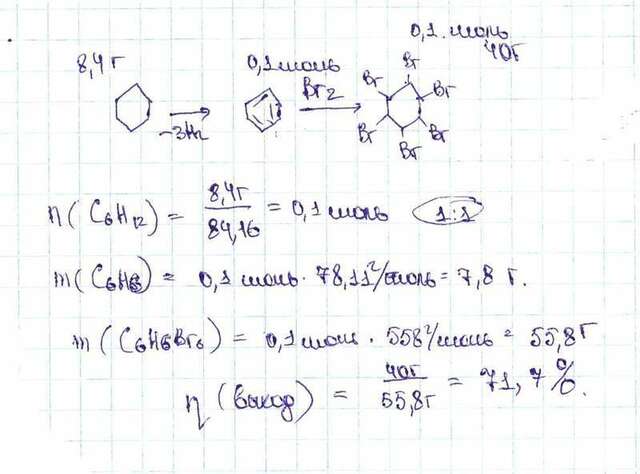 0,1 моль
40г
8,4 г
0,1 моль
Br₂
-3H₂
Br
Br
Br
Br
Br
Br
n(C₆H₁₂) = 8,4г / 84,16 = 0,1 моль 1:1
m(C₆H₆) = 0,1 моль · 78,11 г/моль = 7,8 г.
m(C₆H₆Br₆) = 0,1 моль · 558 г/моль = 55,8 г
η(выход) = 40г / 55,8г = 71,7%.